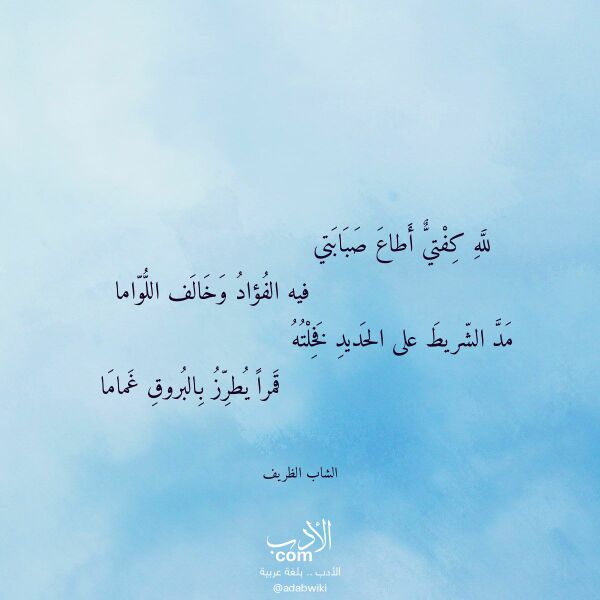 للَّهِ كِفْتيٌّ أَطاعَ صَبَابَتي
فيه الفُؤادُ وَخَالَف اللُّوّاما
مَدَّ الشّريطَ على الحَديدِ فَخِلْتُهُ
قَمراً يُطرِّزُ بِالبُروقِ غَمامَا
الشاب الظريف
الأدب
com
الأدب .. بلغة عربية
@adabwiki